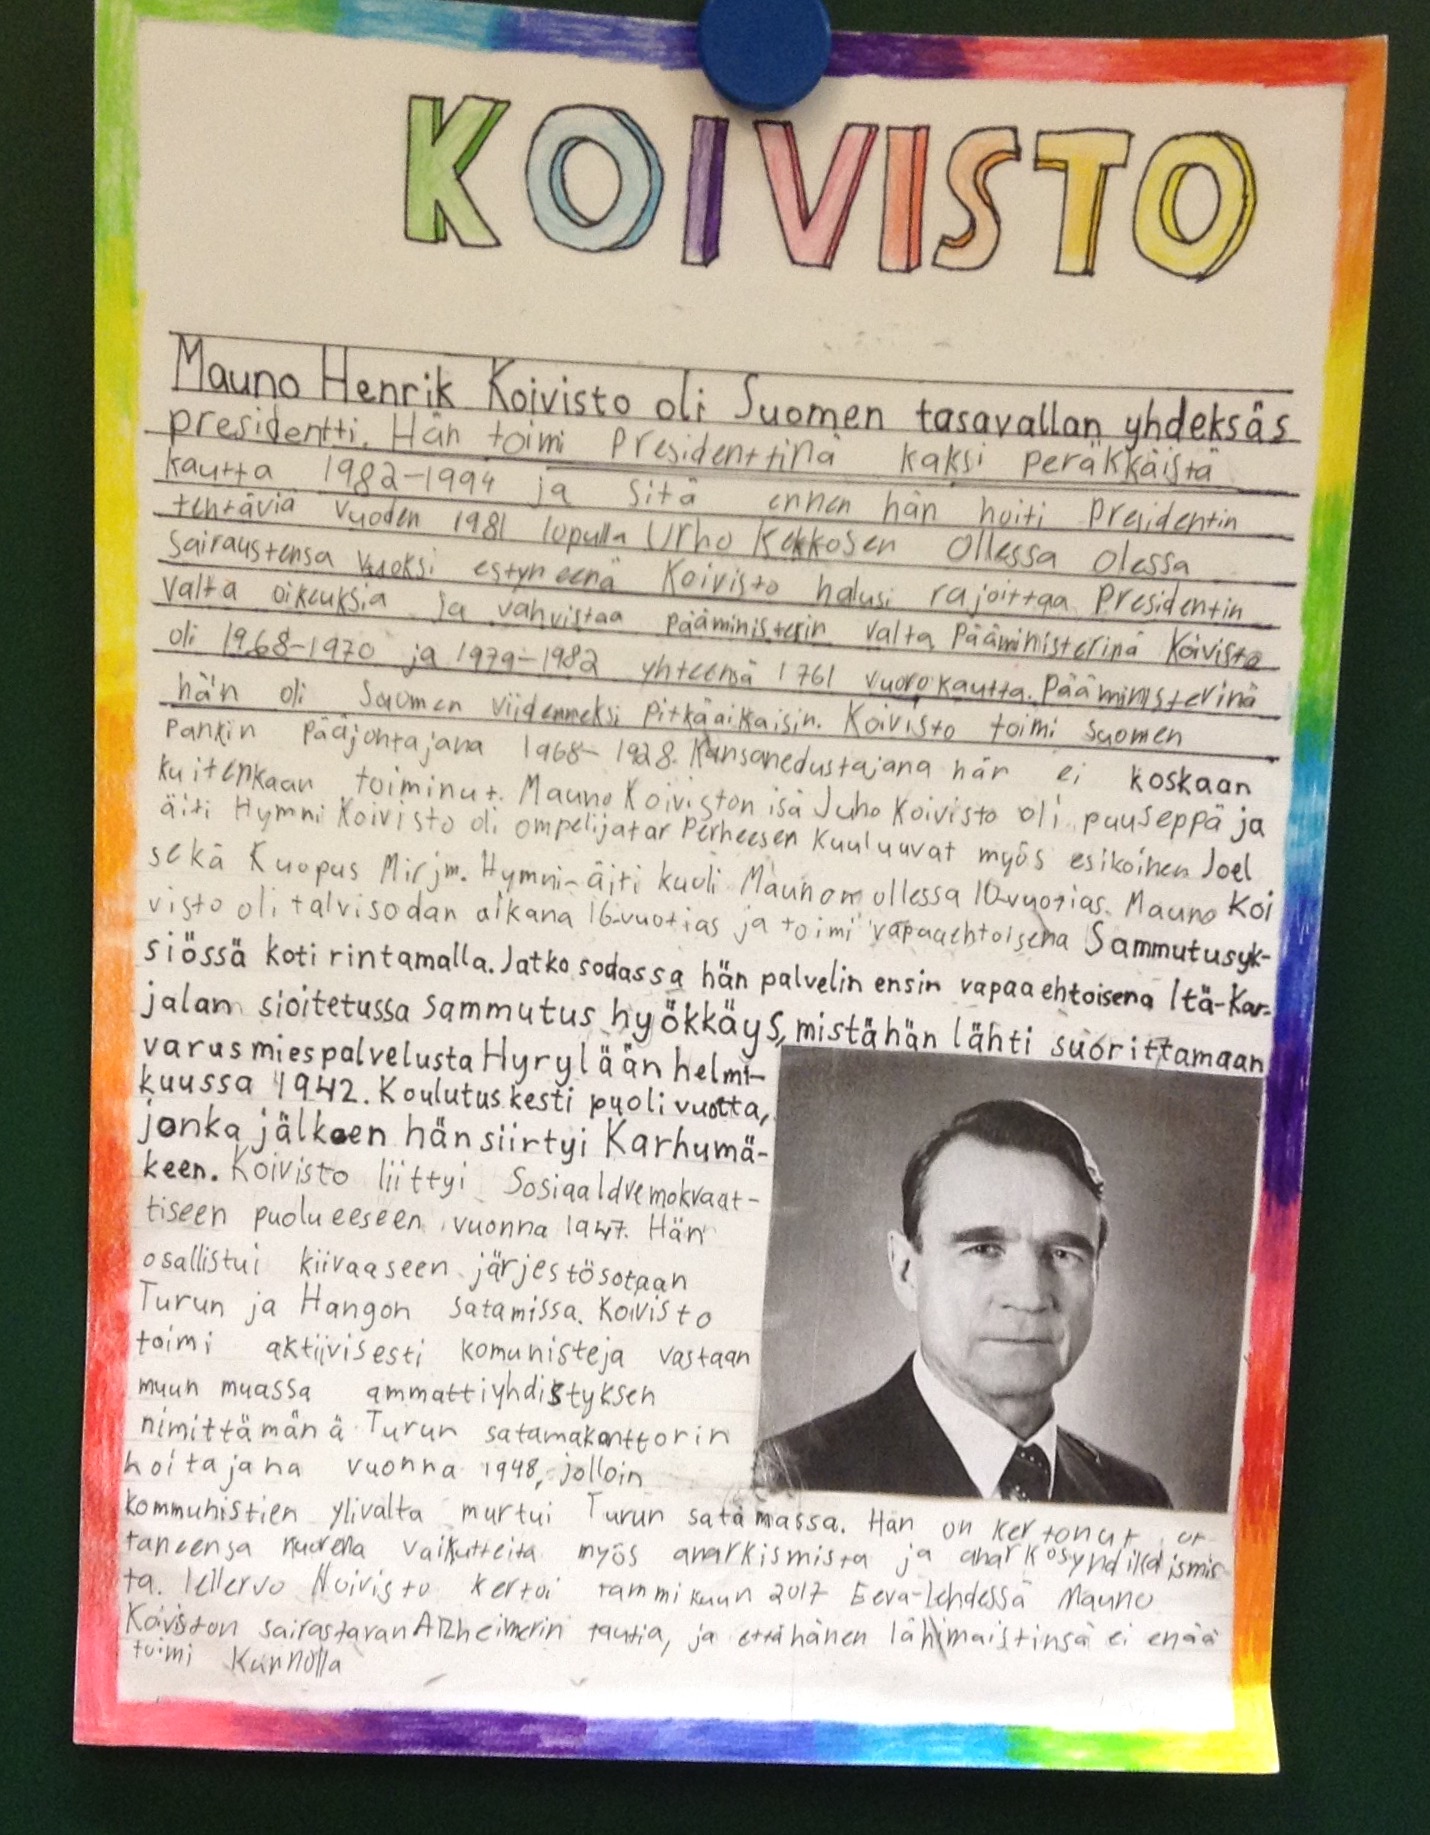 KOIVISTO
Mauno Henrik Koivisto oli Suomen tasavallan yhdeksäs
presidentti. Hän toimi Presidenttinä kaksi peräkkäistä
kautta 1982-1994 ja sitä ennen hän hoiti Presidentin
tehtäviä vuoden 1981 lopulla Urho Kekkosen Ollessa Olessa
Sairaustensa vuoksi estyneenä Koivisto halusi rajoittaa Presidentin
Valta oikeuksia ja vahvistaa pääministerin valta Pääministerinä Koivisto
oli 1968-1970 ja 1979-1982 yhteensä 1761 vuorokautta. Pääministerinä
hän oli Suomen viidenneksi Pitkäaikaisin. Koivisto toimi Suomen
Pankin Pääjohtajana 1968-1928. Kansanedustajana hän ei koskaan
kuitenkaan toiminut. Mauno Koiviston isä Juho Koivisto oli puuseppä ja
äiti Hymni Koivisto oli ompelijatar Perheesen Kuuluuvat myös esikoinen Joel
sekä Kuopus Mirjm. Hymni-äiti kuoli Maunom ollessa 10-vuotias. Mauno Koi
visto oli talvisodan aikana 16-vuotias ja toimi vapaaehtoisena Sammutusyk-
siössä koti rintamalla. Jatko sodassa hän palvelin ensin vapaaehtoisena Itä-Kar-
jalan sioitetussa sammutus hyökkäys, mistähän lähti suorittamaan
varusmiespalvelusta Hyrylään helmi-
kuussa 1942. Koulutus kesti puoli vuotta,
jonka jälkeen hän siirtyi Karhumä-
keen. Koivisto liittyi Sosiaaldvemokvaat-
tiseen puolueeseen vuonna 1947. Hän
osallistui kiivaaseen järjestösotaan
Turun ja Hangon satamissa. Koivisto
toimi aktiivisesti komunisteja vastaan
muun muassa ammattiyhdistyksen
nimittämänä Turun satamakonttorin
hoitajana vuonna 1948, jolloin
kommunistien ylivalta murtui Turun satamassa. Hän on kertonut ot-
taneensa nuorena vaikutteita myös anarkismista ja anarkosyndikalismis-
ta. Tellervo Koivisto kertoi tammikuun 2017 Eeva-lehdessä Mauno
Koiviston sairastavan Alzheimerin tautia, ja että hänen lähimaistinsä ei enää
toimi kunnolla